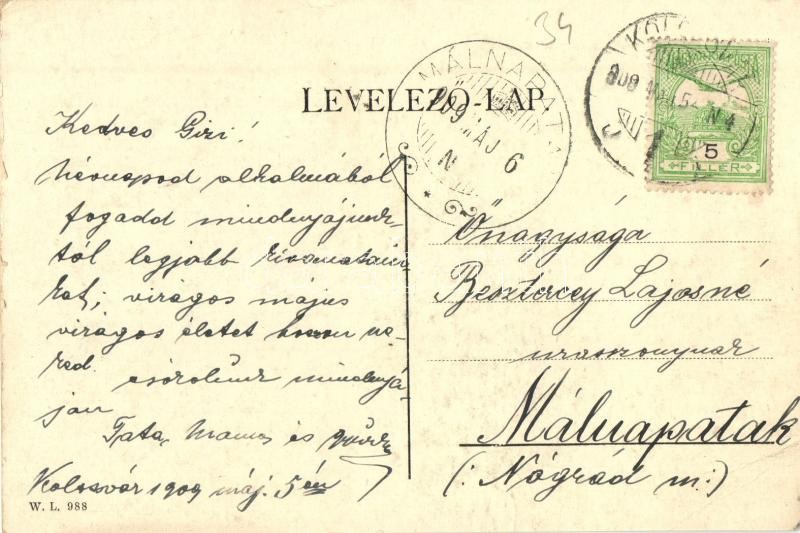 34
LEVELEZŐ-LAP
MÁLNAPATAK
909 MÁJ 6
N
KOLOZSVÁR
N 4
MAGYAR KIR. POSTA
5
FILLER
Kedves Gizi!
Névnapod alkalmából
fogadd mindnyájunk-
tól legjobb kivonatain-
kat; virágos május
virágos életet hozzon ne-
ked.
csókolunk mindnyá-
jan
Tata, Mama és
Kolozsvár 1909 máj. 5én
Őnagysága
Beszterczey Lajosné
uraszonynak
Málnapatak
(: Nógrád m:)
W. L. 988